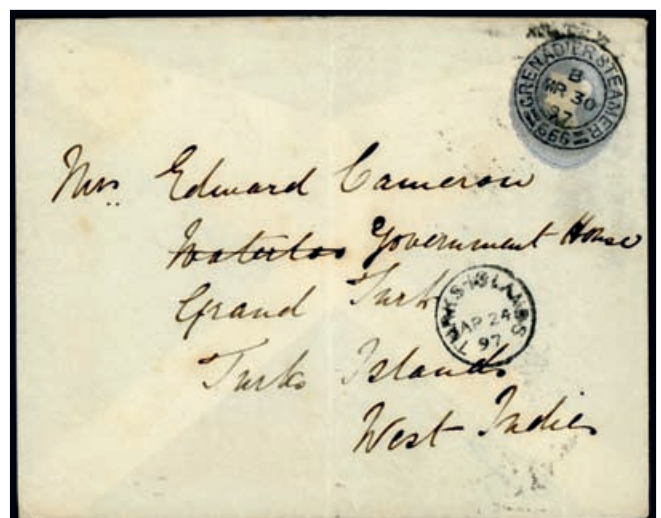 GRENADIER STEAMER
B
MR 30
97
666
Mrs Edward Cameron
Waterloo Government House
Grand Turk
TURKS-ISLANDS
AP 24
97
Turks Islands
West Indies